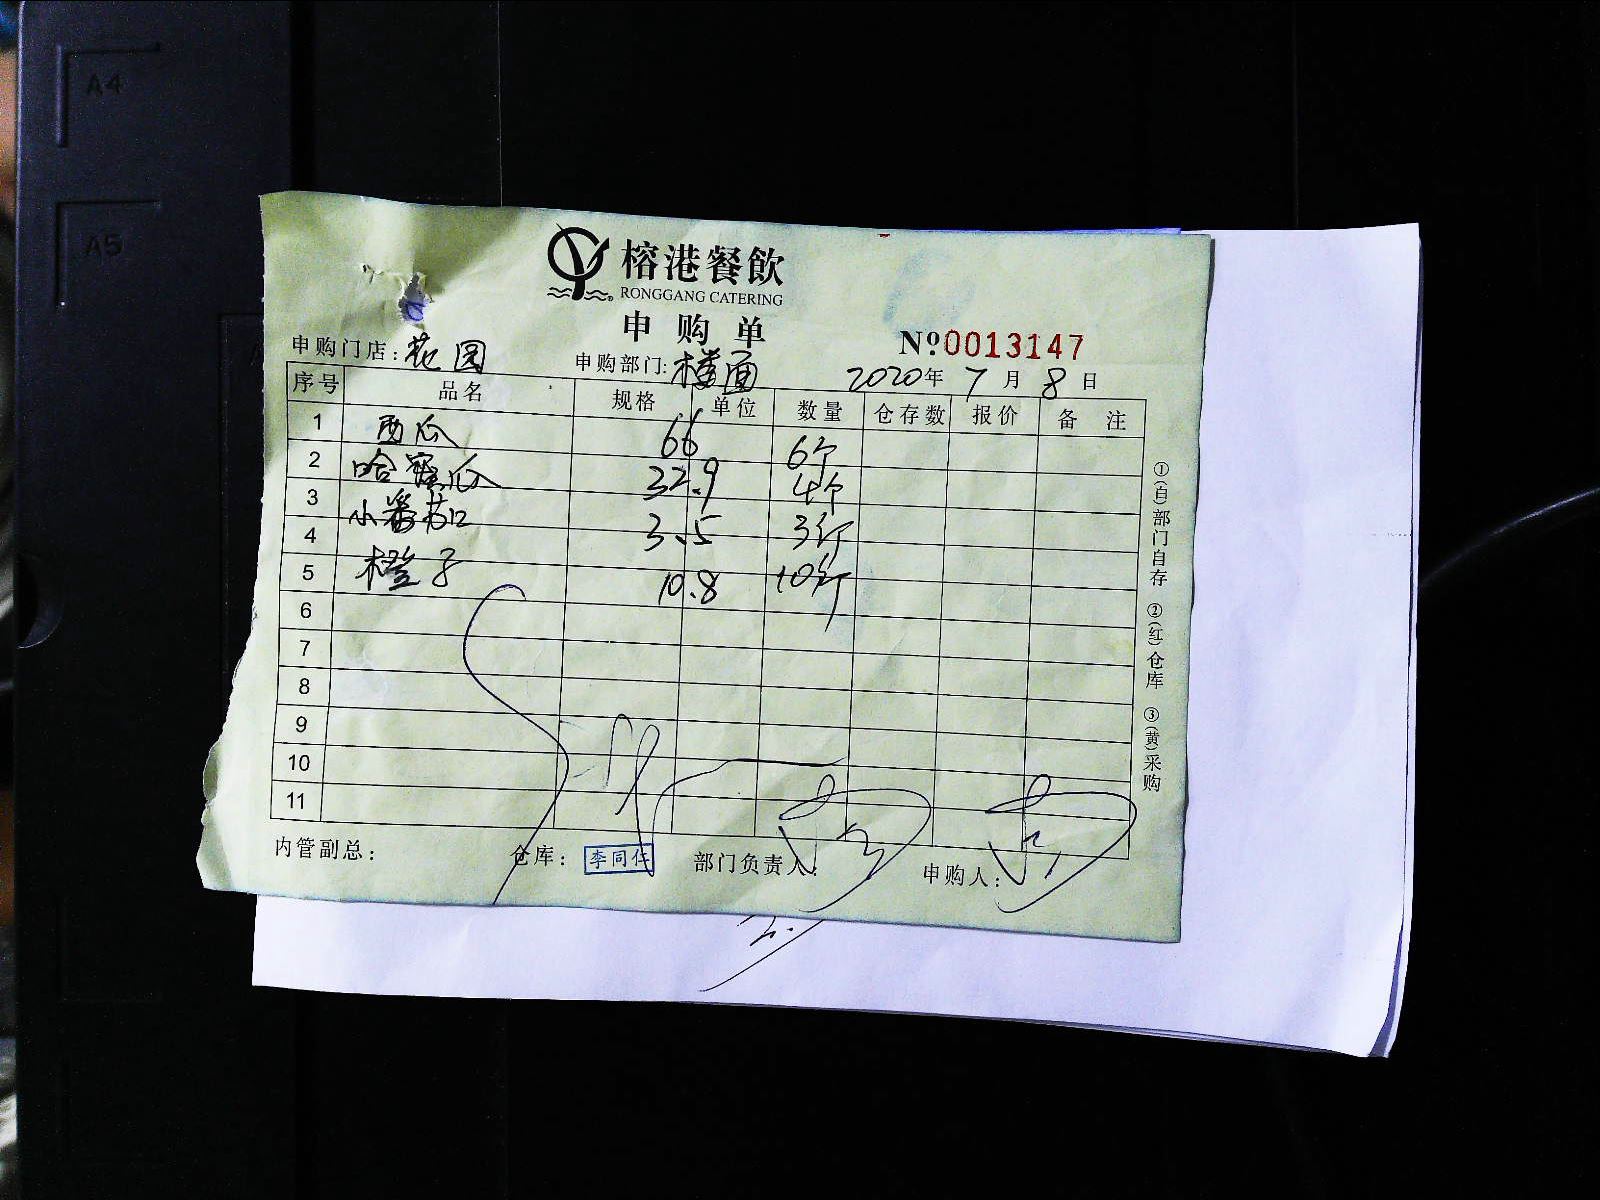 A4
A5
榕港餐飲
RONGGANG CATERING
申购单
Nº0013147
申购门店:花园 申购部门:楼面 2020年7月8日
序号 品名 规格 单位 数量 仓存数 报价 备注
1 西瓜 66 6个
2 哈密瓜 32.9 4个
3 小番茄 3.5 3斤
4 橙子 10.8 10斤
5
6
7
8
9
10
11
内管副总: 仓库: 李同仁 部门负责人: 申购人:
①(白)部门自存 ②(红)仓库 ③(黄)采购